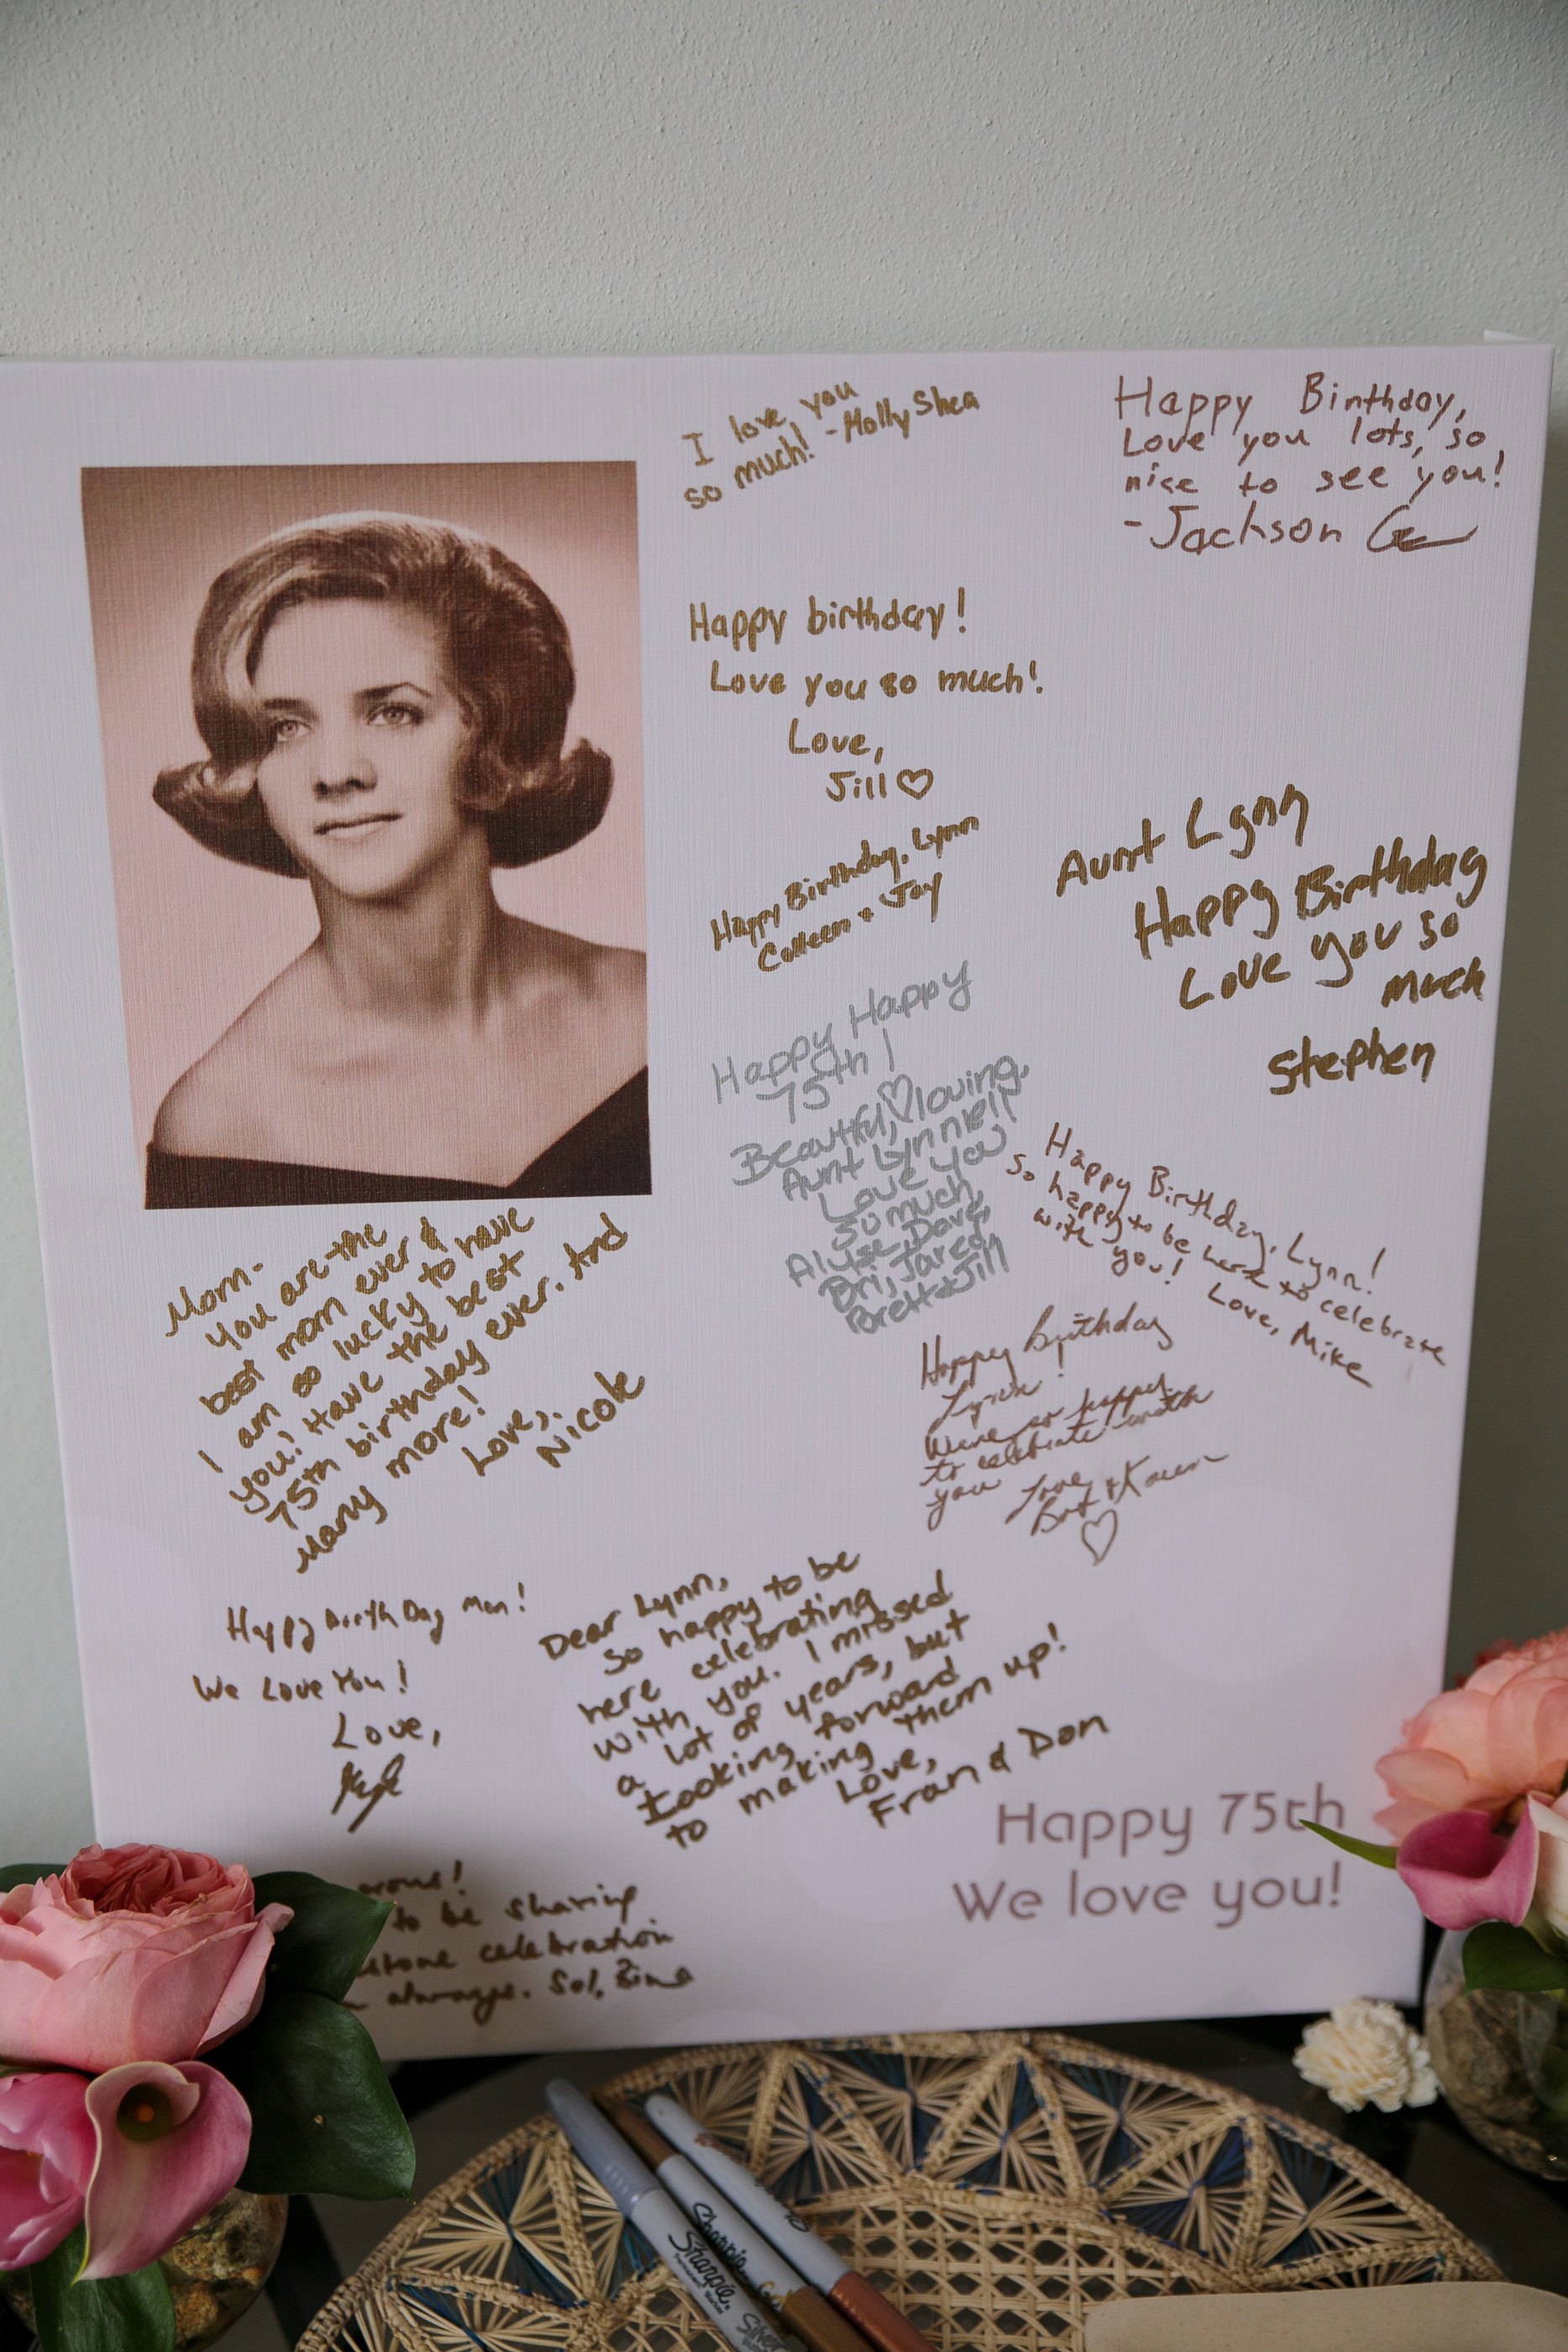 I love you
so much! -Molly Shea
Happy Birthday,
Love you lots, so
nice to see you!
-Jackson
Happy birthday!
Love you so much!
Love,
Jill♡
Happy Birthday, Lynn
Colleen + Jay
Aunt Lynn
Happy Birthday
Love you so
much
Stephen
Happy Happy
75th!
Beautiful,♡loving,
Aunt Lynnie!!
Love you
so much,
Alyse, Dave,
Bri, Jared,
Brett+Jill
Happy Birthday, Lynn!
So happy to be here to celebrate
with you!
Love, Mike
Happy Birthday
Lynn!
We're so happy
to celebrate with
you
Love
& Karen
♡
Mom-
You are the
best mom ever &
I am so lucky to have
you! Have the best
75th birthday ever. And
Many more!
Love,
Nicole
Happy Birth Day Mom!
We Love You!
Love,
Dear Lynn,
So happy to be
here celebrating
with you. I missed
a lot of years, but
Looking forward
to making them up!
Love,
Fran & Don
to be sharing
celebration
always. Sol,
Happy 75th
We love you!
Sharpie
Sharpie
Silver